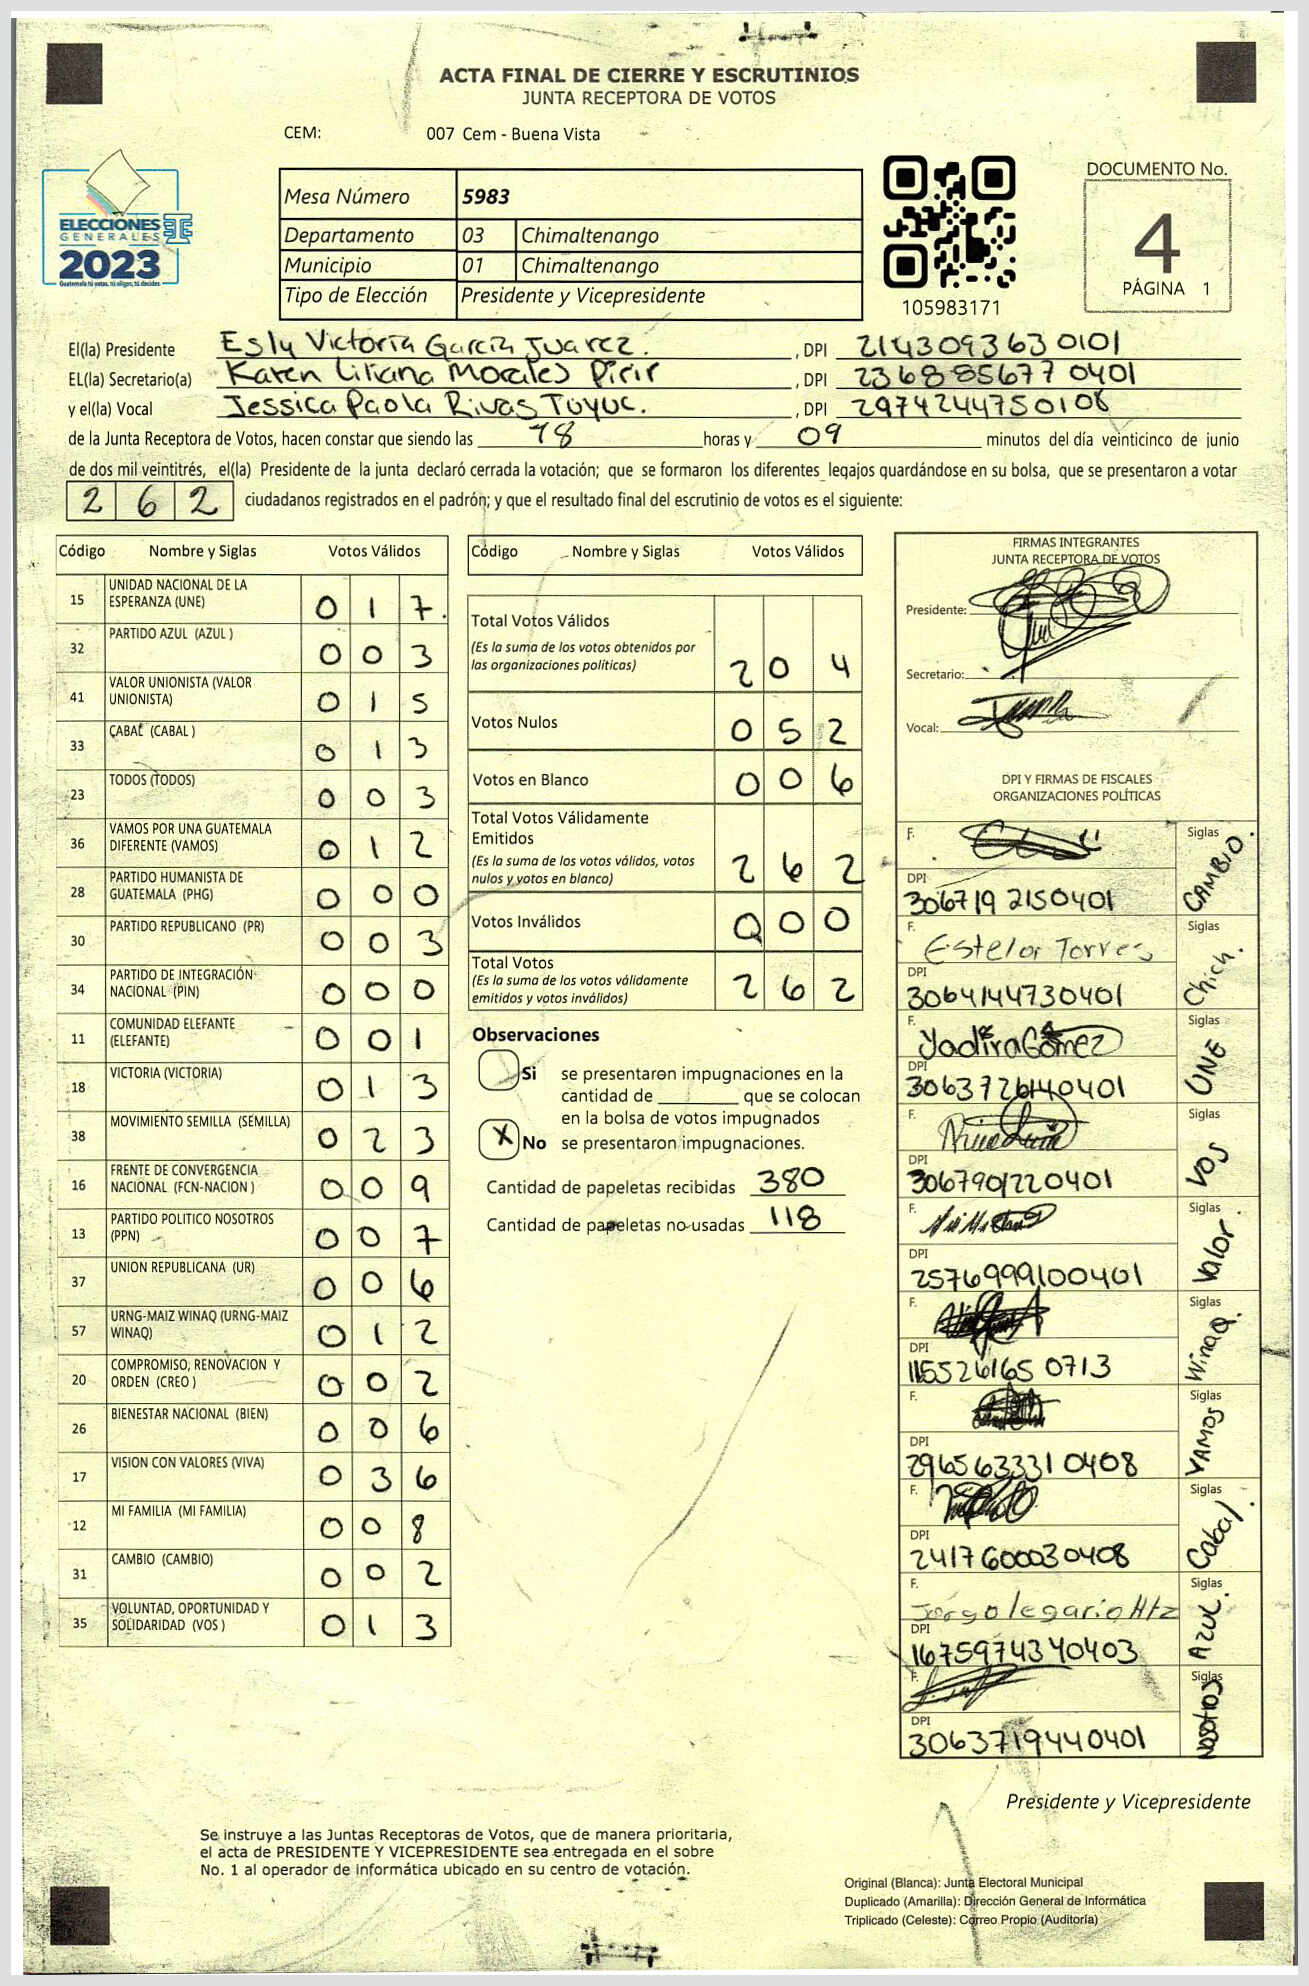 ACTA FINAL DE CIERRE Y ESCRUTINIOS
JUNTA RECEPTORA DE VOTOS
CEM: 007 Cem - Buena Vista
ELECCIONES
GENERALES
2023
Guatemala tú votas, tú eliges, tú decides
Mesa Número 5983
Departamento 03 Chimaltenango
Municipio 01 Chimaltenango
Tipo de Elección Presidente y Vicepresidente
105983171
DOCUMENTO No.
4
PÁGINA 1
El(la) Presidente Esly Victoria García Juarez. , DPI 2143093630101
EL(la) Secretario(a) Karen Liliana Morales Pirir , DPI 2368856770401
y el(la) Vocal Jessica Paola Rivas Tuyuc. , DPI 2974244750108
de la Junta Receptora de Votos, hacen constar que siendo las 18 horas y 09 minutos del día veinticinco de junio
de dos mil veintitrés, el(la) Presidente de la junta declaró cerrada la votación; que se formaron los diferentes legajos quardándose en su bolsa, que se presentaron a votar
262 ciudadanos registrados en el padrón; y que el resultado final del escrutinio de votos es el siguiente:
Código Nombre y Siglas Votos Válidos
15 UNIDAD NACIONAL DE LA ESPERANZA (UNE) 0 1 7
32 PARTIDO AZUL (AZUL ) 0 0 3
41 VALOR UNIONISTA (VALOR UNIONISTA) 0 1 5
33 CABAL (CABAL ) 0 1 3
23 TODOS (TODOS) 0 0 3
36 VAMOS POR UNA GUATEMALA DIFERENTE (VAMOS) 0 1 2
28 PARTIDO HUMANISTA DE GUATEMALA (PHG) 0 0 0
30 PARTIDO REPUBLICANO (PR) 0 0 3
34 PARTIDO DE INTEGRACIÓN NACIONAL (PIN) 0 0 0
11 COMUNIDAD ELEFANTE (ELEFANTE) 0 0 1
18 VICTORIA (VICTORIA) 0 1 3
38 MOVIMIENTO SEMILLA (SEMILLA) 0 2 3
16 FRENTE DE CONVERGENCIA NACIONAL (FCN-NACION ) 0 0 9
13 PARTIDO POLITICO NOSOTROS (PPN) 0 0 7
37 UNION REPUBLICANA (UR) 0 0 6
57 URNG-MAIZ WINAQ (URNG-MAIZ WINAQ) 0 1 2
20 COMPROMISO, RENOVACION Y ORDEN (CREO ) 0 0 2
26 BIENESTAR NACIONAL (BIEN) 0 0 6
17 VISION CON VALORES (VIVA) 0 3 6
12 MI FAMILIA (MI FAMILIA) 0 0 8
31 CAMBIO (CAMBIO) 0 0 2
35 VOLUNTAD, OPORTUNIDAD Y SOLIDARIDAD (VOS ) 0 1 3
Código Nombre y Siglas Votos Válidos
Total Votos Válidos
(Es la suma de los votos obtenidos por
las organizaciones políticas) 2 0 4
Votos Nulos 0 5 2
Votos en Blanco 0 0 6
Total Votos Válidamente
Emitidos
(Es la suma de los votos válidos, votos
nulos y votos en blanco) 2 6 2
Votos Inválidos 0 0 0
Total Votos
(Es la suma de los votos válidamente
emitidos y votos inválidos) 2 6 2
Observaciones
Si se presentaron impugnaciones en la
cantidad de ________ que se colocan
en la bolsa de votos impugnados
X No se presentaron impugnaciones.
Cantidad de papeletas recibidas 380
Cantidad de papeletas no usadas 118
FIRMAS INTEGRANTES
JUNTA RECEPTORA DE VOTOS
Presidente:
Secretario:
Vocal:
DPI Y FIRMAS DE FISCALES
ORGANIZACIONES POLÍTICAS
F. Siglas CAMBIO.
DPI
306719 2150401
F. Estelor Torres Siglas Chich.
DPI
3064144730401
F. Yadira Gómez Siglas UNE
DPI
3063726140401
F. Siglas VOS
DPI
3067901220401
F. Siglas Valor.
DPI
2576999100401
F. Siglas Winaq.
DPI
115526165 0713
F. Siglas VAMOS
DPI
2965633310408
F. Siglas Cabal.
DPI
2417600030408
F. Jorgolegario Htz Siglas AZUL.
DPI
1675974340403
F. Siglas Nosotros
DPI
3063719440401
Presidente y Vicepresidente
Se instruye a las Juntas Receptoras de Votos, que de manera prioritaria,
el acta de PRESIDENTE Y VICEPRESIDENTE sea entregada en el sobre
No. 1 al operador de informática ubicado en su centro de votación.
Original (Blanca): Junta Electoral Municipal
Duplicado (Amarilla): Dirección General de Informática
Triplicado (Celeste): Correo Propio (Auditoría)